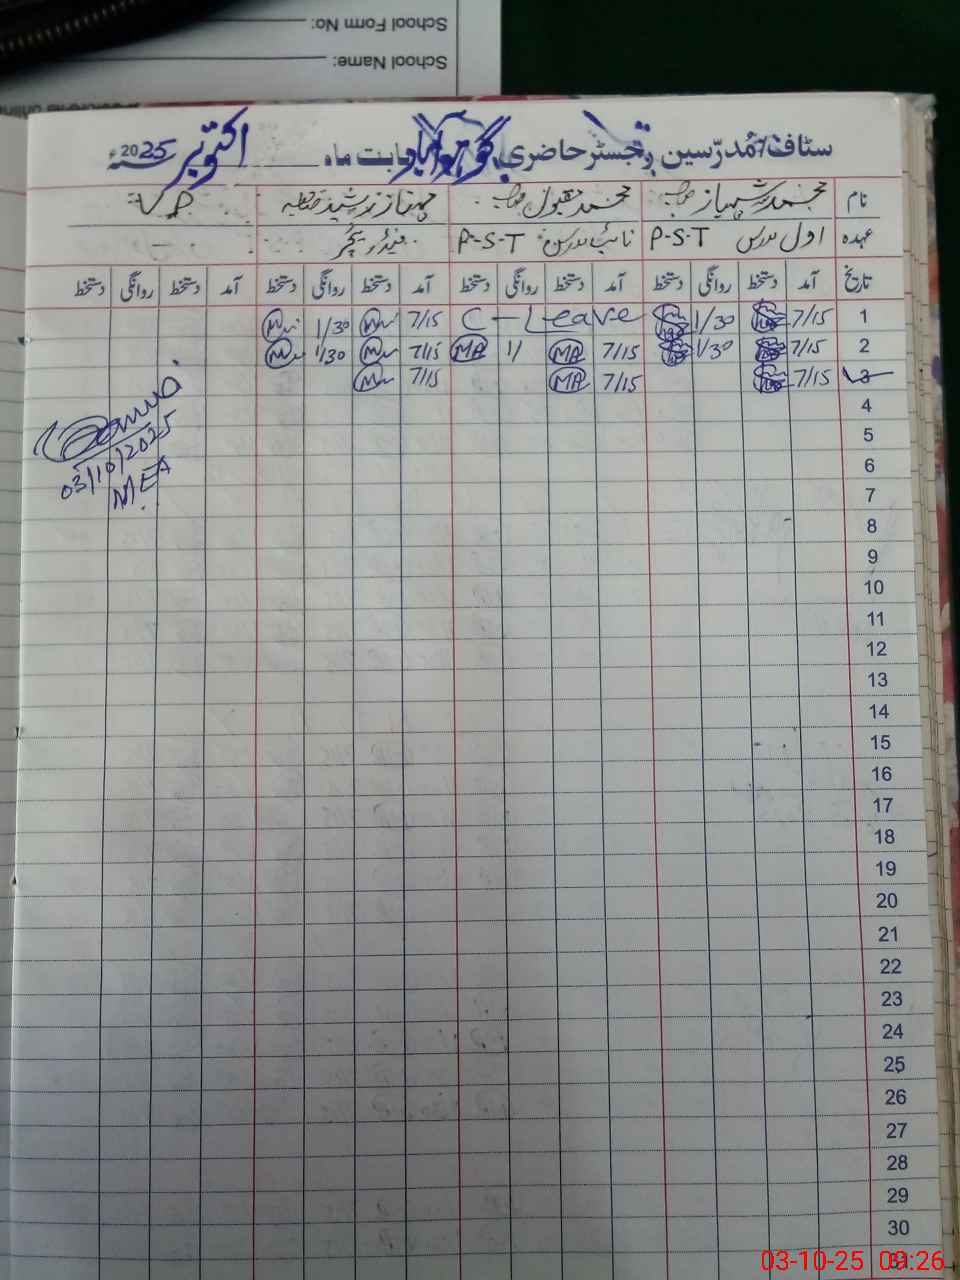 School Form No:
School Name:
سٹاف/مدرّسین رجسٹر حاضری بابت ماہ اکتوبر 2025ء
نام محمد شہباز صاحب محمد مقبول صاحب مہناز رشید صاحبہ VP
عہدہ اول مدرس P-S-T نائب مدرس P-S-T فیڈر ٹیچر
تاریخ آمد دستخط روانگی دستخط آمد دستخط روانگی دستخط آمد دستخط روانگی دستخط آمد دستخط روانگی دستخط
1 7/15 1/30 C-Leave 7/15 1/30
2 7/15 1/30 7/15 MA 1/ MA 7/15 1/30
3 7/15 7/15 MA 7/15
4
5
6
7
8
9
10
11
12
13
14
15
16
17
18
19
20
21
22
23
24
25
26
27
28
29
30
03/10/2025
MEA
03-10-25 09:26